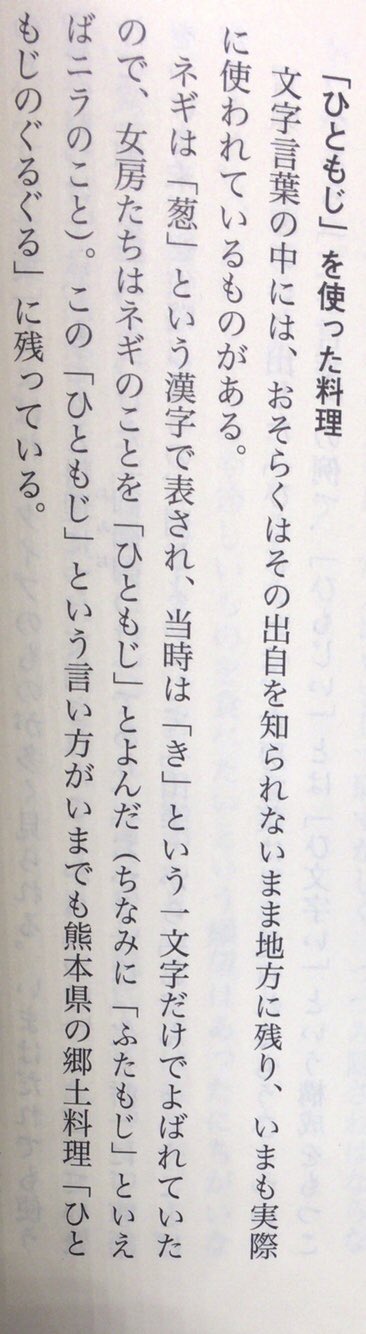 「ひともじ」を使った料理
文字言葉の中には、おそらくはその出自を知られないまま地方に残り、いまも実際
に使われているものがある。
ネギは「葱」という漢字で表され、当時は「き」という一文字だけでよばれていた
ので、女房たちはネギのことを「ひともじ」とよんだ(ちなみに「ふたもじ」といえ
ばニラのこと)。この「ひともじ」という言い方がいまでも熊本県の郷土料理「ひと
もじのぐるぐる」に残っている。